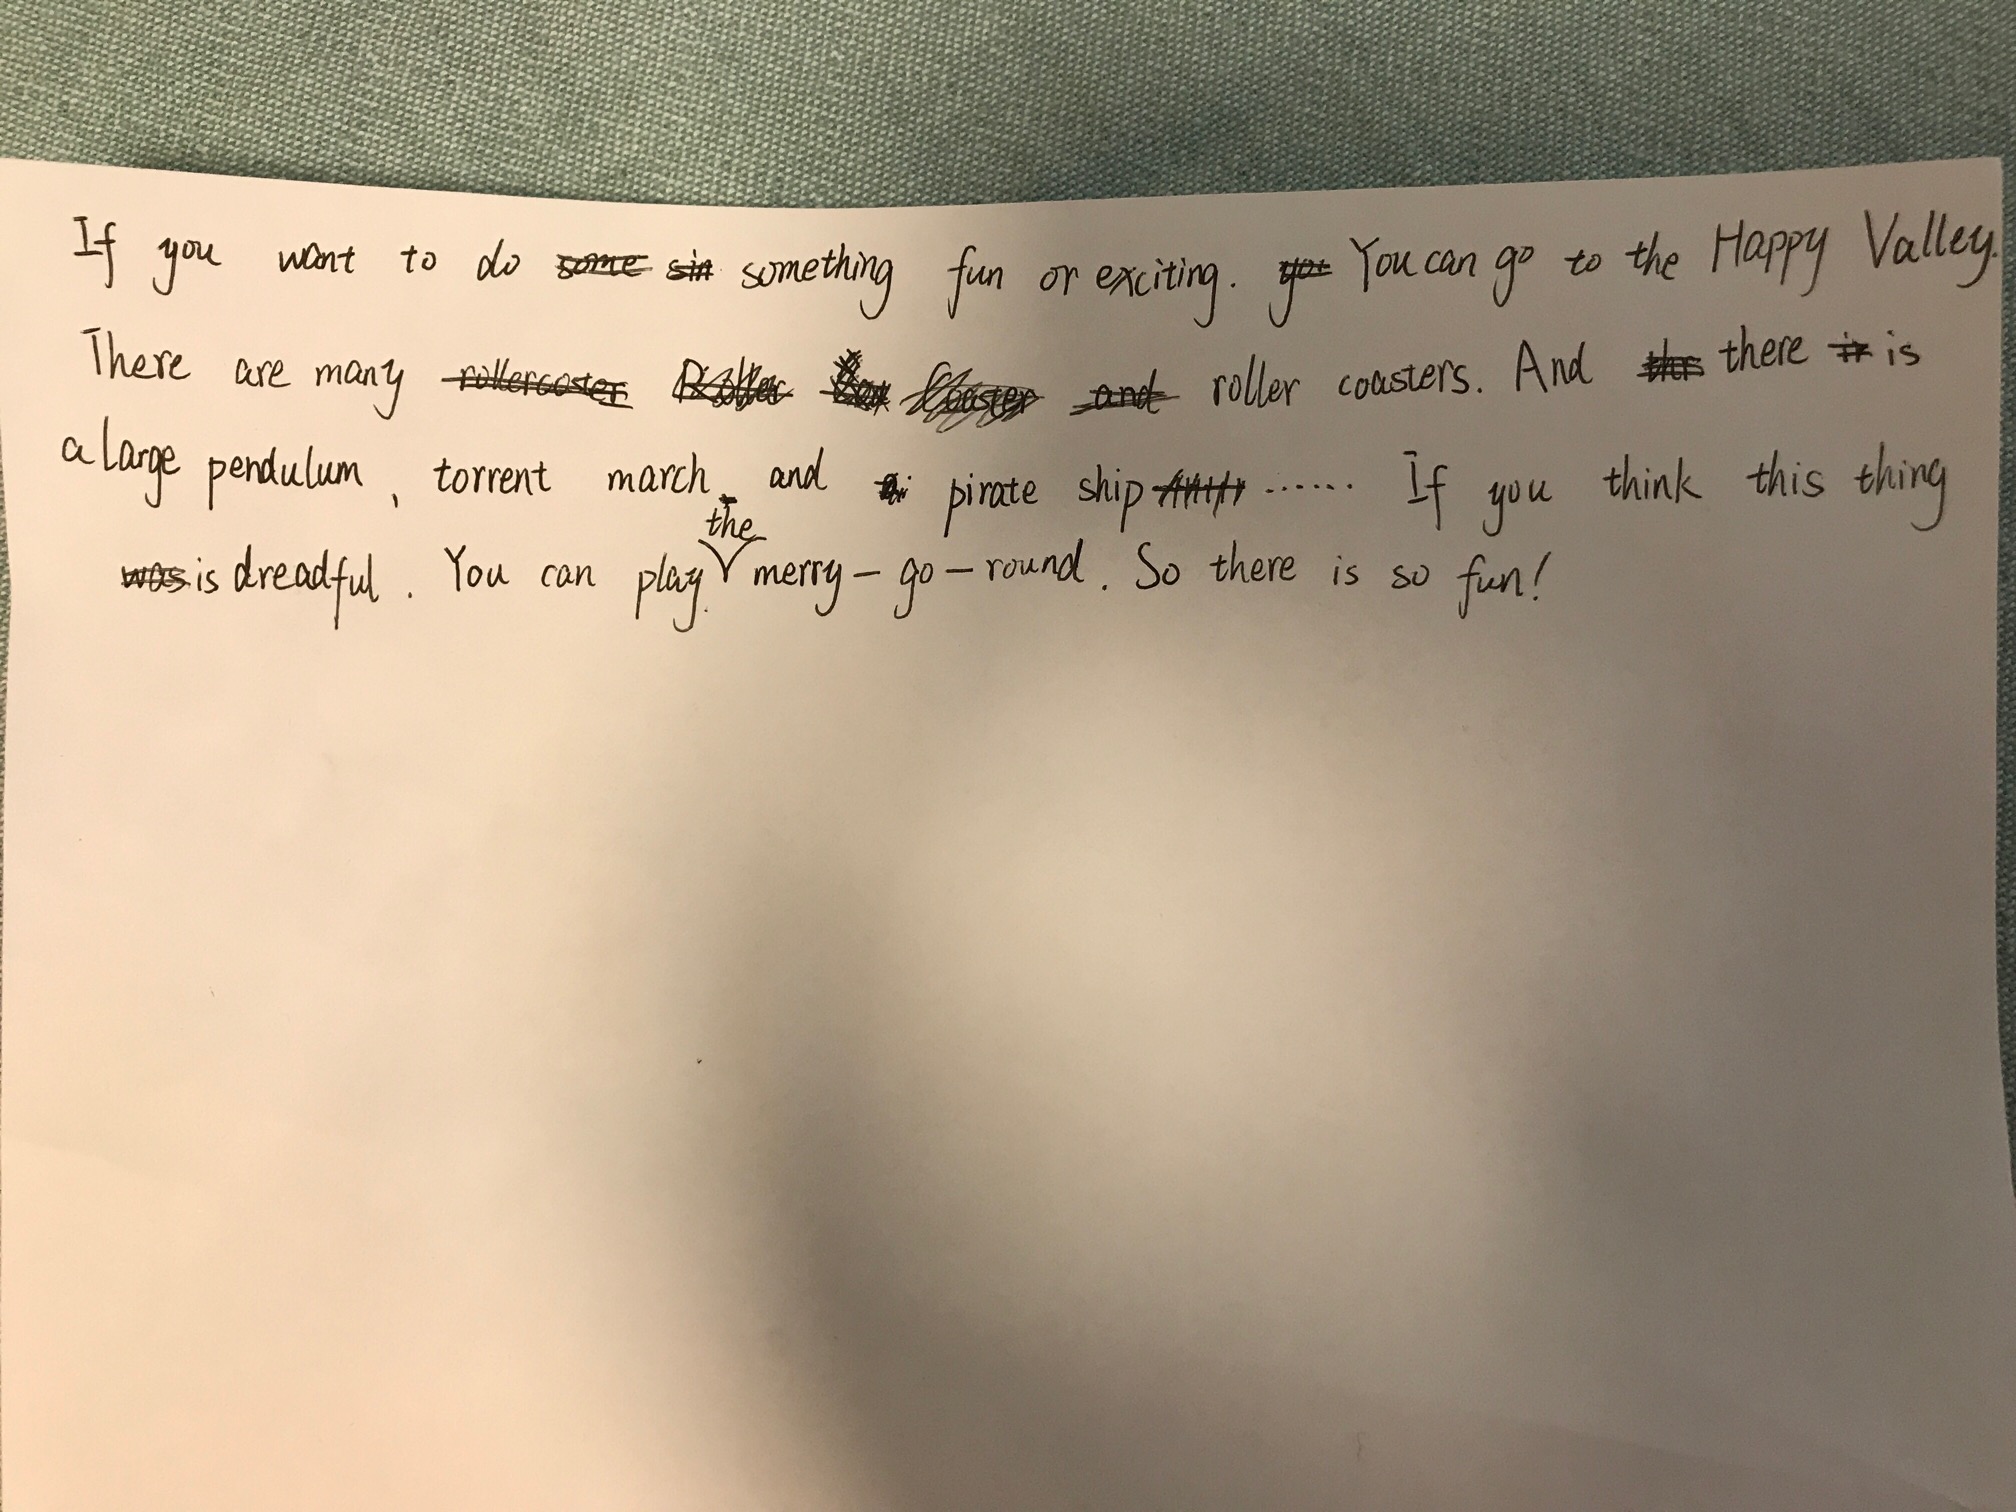 If you want to do something fun or exciting. You can go to the Happy Valley.
There are many roller coasters. And there is
a large pendulum, torrent march, and pirate ship ...... If you think this thing
is dreadful. You can play the merry-go-round. So there is so fun!